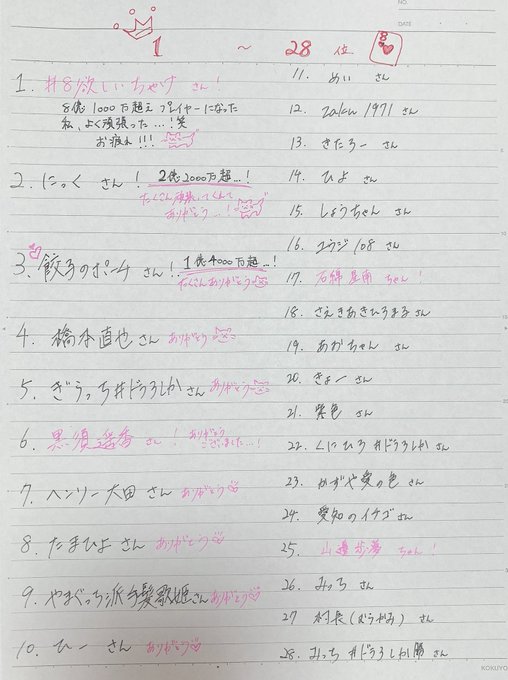 NO.
DATE
1 ～ 28 位
8
1. #8欲しいちゃけ さん！
8億1000万超え プレイヤーになった
私、よく頑張った…！笑
お疲れ!!!
2. にっく さん！ 2億2000万超…！
たくさん頑張ってくれて
ありがとう…！
3. 餃子のポーチ さん！ 1億4000万超…！
たくさんありがとう
4. 橋本直也 さん ありがとう
5. ぎうっち#ドラ3しか さん ありがとう
6. 黒須遥香 さん！ ありがとう
ございました…！
7. ヘンリー大田 さん ありがとう
8. たまひよ さん ありがとう
9. やまぐっち派手髪歌姫 さん ありがとう
10. ひー さん ありがとう
11. めい さん
12. zaku1971 さん
13. きたろー さん
14. ひよ さん
15. しょうちゃん さん
16. ユウジ108 さん
17. 石綿星南 ちゃん！
18. さえきあきひろまる さん
19. あかちゃん さん
20. きょー さん
21. 紫色 さん
22. くにひろ#ドラ3しか さん
23. かずや愛の色 さん
24. 愛知のイチゴ さん
25. 山邊歩夢 ちゃん！
26. みっち さん
27 村長(ぼうがみ) さん
28. みっち #ドラ3しか勝 さん
KOKUYO